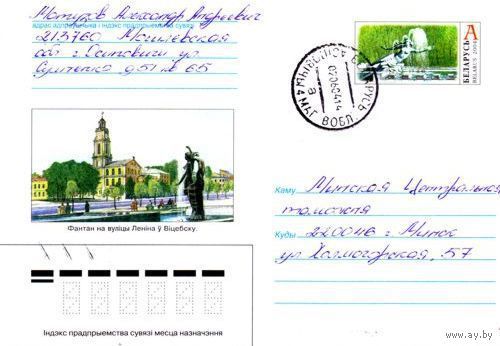 Мотуров Александр Андреевич
адрас адпраўшчыка і індэкс прадпрыемства сувязі
213760 Могилевская
обл г. Осиповичи ул
Сумченко д 51 кв 65
БЕЛАРУСЬ
BELARUS
А
АСІПОВІЧЫ 4 МАГ. ВОБЛ.
БЕЛАРУСЬ
Фантан на вуліцы Леніна ў Віцебску.
Каму Минская Центральная
таможня
Куды 220046 г Минск
ул Холмогорская, 57
Індэкс прадпрыемства сувязі месцаназначэння
http://www.ay.by/